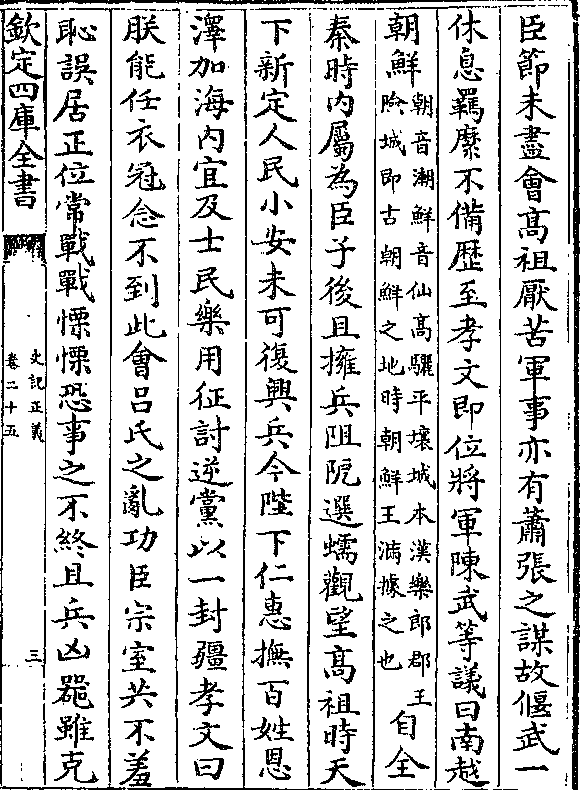 臣節未盡會髙祖厭苦軍事亦有蕭張之謀故偃武一
休息羈縻不備歴至孝文即位將軍陳武等議曰南越
朝鮮朝音潮鮮音仙高驪平壤城本漢樂郎郡王
險城即古朝鮮之地時朝鮮王滿據之也自全
秦時内屬為臣子後且擁兵阻阨選蠕觀望髙祖時天
下新定人民小安未可復興兵今陛下仁惠撫百姓恩
澤加海内宜及士民樂用征討逆黨以一封疆孝文曰
朕能任衣冠念不到此會吕氏之亂功臣宗室共不羞
恥誤居正位常戰戰慄慄恐事之不終且兵凶器雖克
欽定四庫全書
史記正義
卷二十五
三